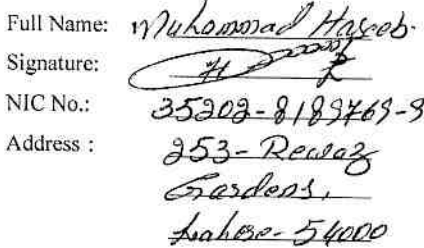 Full Name: Muhammad Haseeb.
Signature:
NIC No.: 35202-8189769-9
Address : 253-Rewaz
Gardens,
Lahore-54000